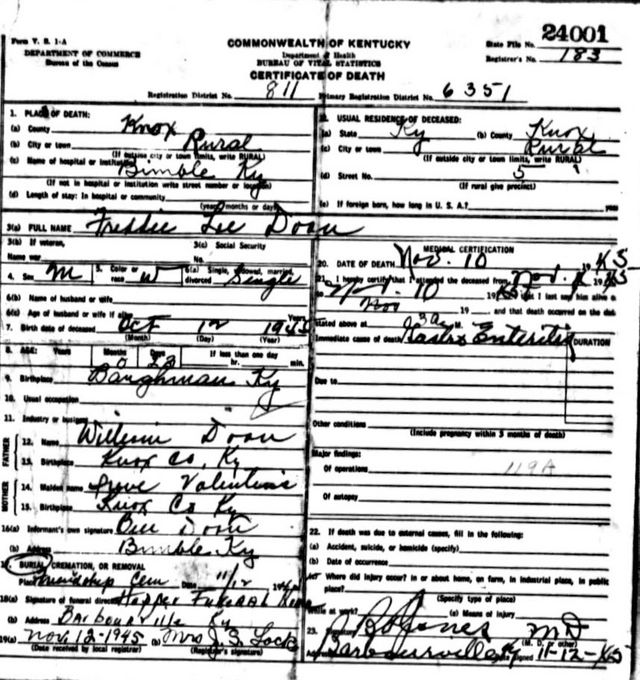 Form V. S. 1-A
DEPARTMENT OF COMMERCE
Bureau of the Census
COMMONWEALTH OF KENTUCKY
Department of Health
BUREAU OF VITAL STATISTICS
CERTIFICATE OF DEATH
State File No. 24001
Registrar's No. 183
Registration District No. 811 Primary Registration District No. 6351
1. PLACE OF DEATH:
(a) County Knox
(b) City or town Rural
(If outside city or town limits, write RURAL)
(c) Name of hospital or institution Bimble Ky
(If not in hospital or institution write street number or location)
(d) Length of stay: In hospital or community
(years, months or days)
2. USUAL RESIDENCE OF DECEASED:
(a) State Ky (b) County Knox
(c) City or town Rural
(If outside city or town limits, write RURAL)
(d) Street No. 5
(If rural give precinct)
(e) If foreign born, how long in U. S. A.? year
3(a) FULL NAME Freddie Lee Doan
3(b) If veteran, Name war
3(c) Social Security No.
4. Sex M 5. Color or race W 6(a) Single, widowed, married, divorced Single
6(b) Name of husband or wife
6(c) Age of husband or wife if alive Years
7. Birth date of deceased Oct 12 1945
(Month) (Day) (Year)
8. AGE: Years Months 0 Days If less than one day hr. min.
9. Birthplace Baughman Ky
10. Usual occupation
11. Industry or business
FATHER
12. Name William Doan
13. Birthplace Knox Co. Ky
MOTHER
14. Maiden name Valentine
15. Birthplace Knox Co Ky
16(a) Informant's own signature Bill Doan
(b) Address Bimble Ky
17. BURIAL, CREMATION, OR REMOVAL
Place Friendship Cem Date 11/12 19
18(a) Signature of funeral director Hopper Funeral Home
(b) Barbourville Ky
19(a) Nov 12-1945 (b) Mrs J. S. Lock
(Date received by local registrar) (Registrar's signature)
MEDICAL CERTIFICATION
20. DATE OF DEATH Nov. 10 1945
21. I hereby certify that I attended the deceased from Nov.
10 19 45 that I last saw him alive on
Nov 19 and that death occurred on the date
stated above at 3 a M.
Immediate cause of death Gastro Enteritis DURATION
Due to
Other conditions
(Include pregnancy within 3 months of death)
Major findings:
Of operations 119A
Of autopsy
22. If death was due to external causes, fill in the following:
(a) Accident, suicide, or homicide (specify)
(b) Date of occurrence
(c) Where did injury occur? In or about home, on farm, in industrial place, in public
place?
(Specify type of place)
While at work? (e) Means of injury
23. Signature Jones MD
(M. D. or other)
Address Barbourville Ky 11-12-45